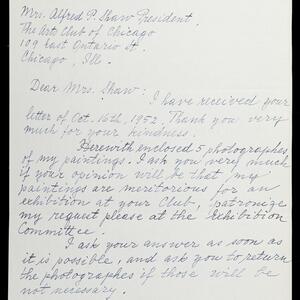 Mrs. Alfred P. Shaw President.
The Art Club of Chicago
109 East Ontario St.
Chicago, Ill.
Dear Mrs. Shaw:
I have received your
letter of Oct. 16th, 1952. Thank you very
much for your kindness.
Herewith enclosed 5 photographes
of my paintings. I ask you very much
if your opinion will be that my
paintings are meritorious for an
exhibition at your Club, patronize
my request please at the exhibition
Committee.
I ask your answer as soon as
it is possible, and ask you to return
the photographes if those will be
not necessary.